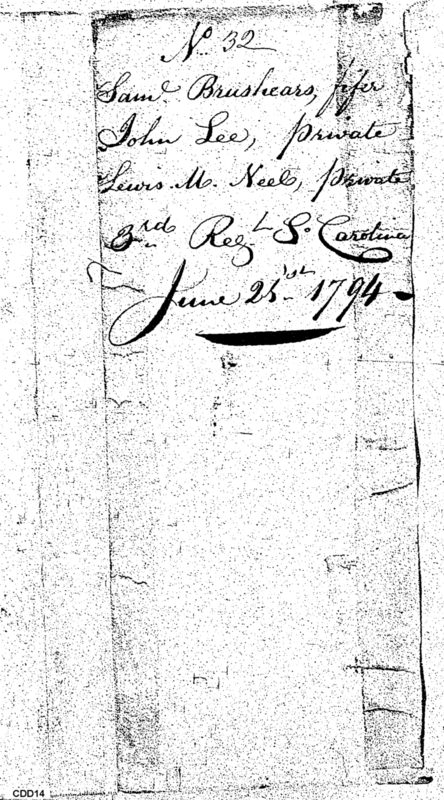 No. 32
Saml. Brushears, fifer
John Lee, private
Lewis. M. Neel, private
3rd Regt So Carolina
June 1794
CDD14